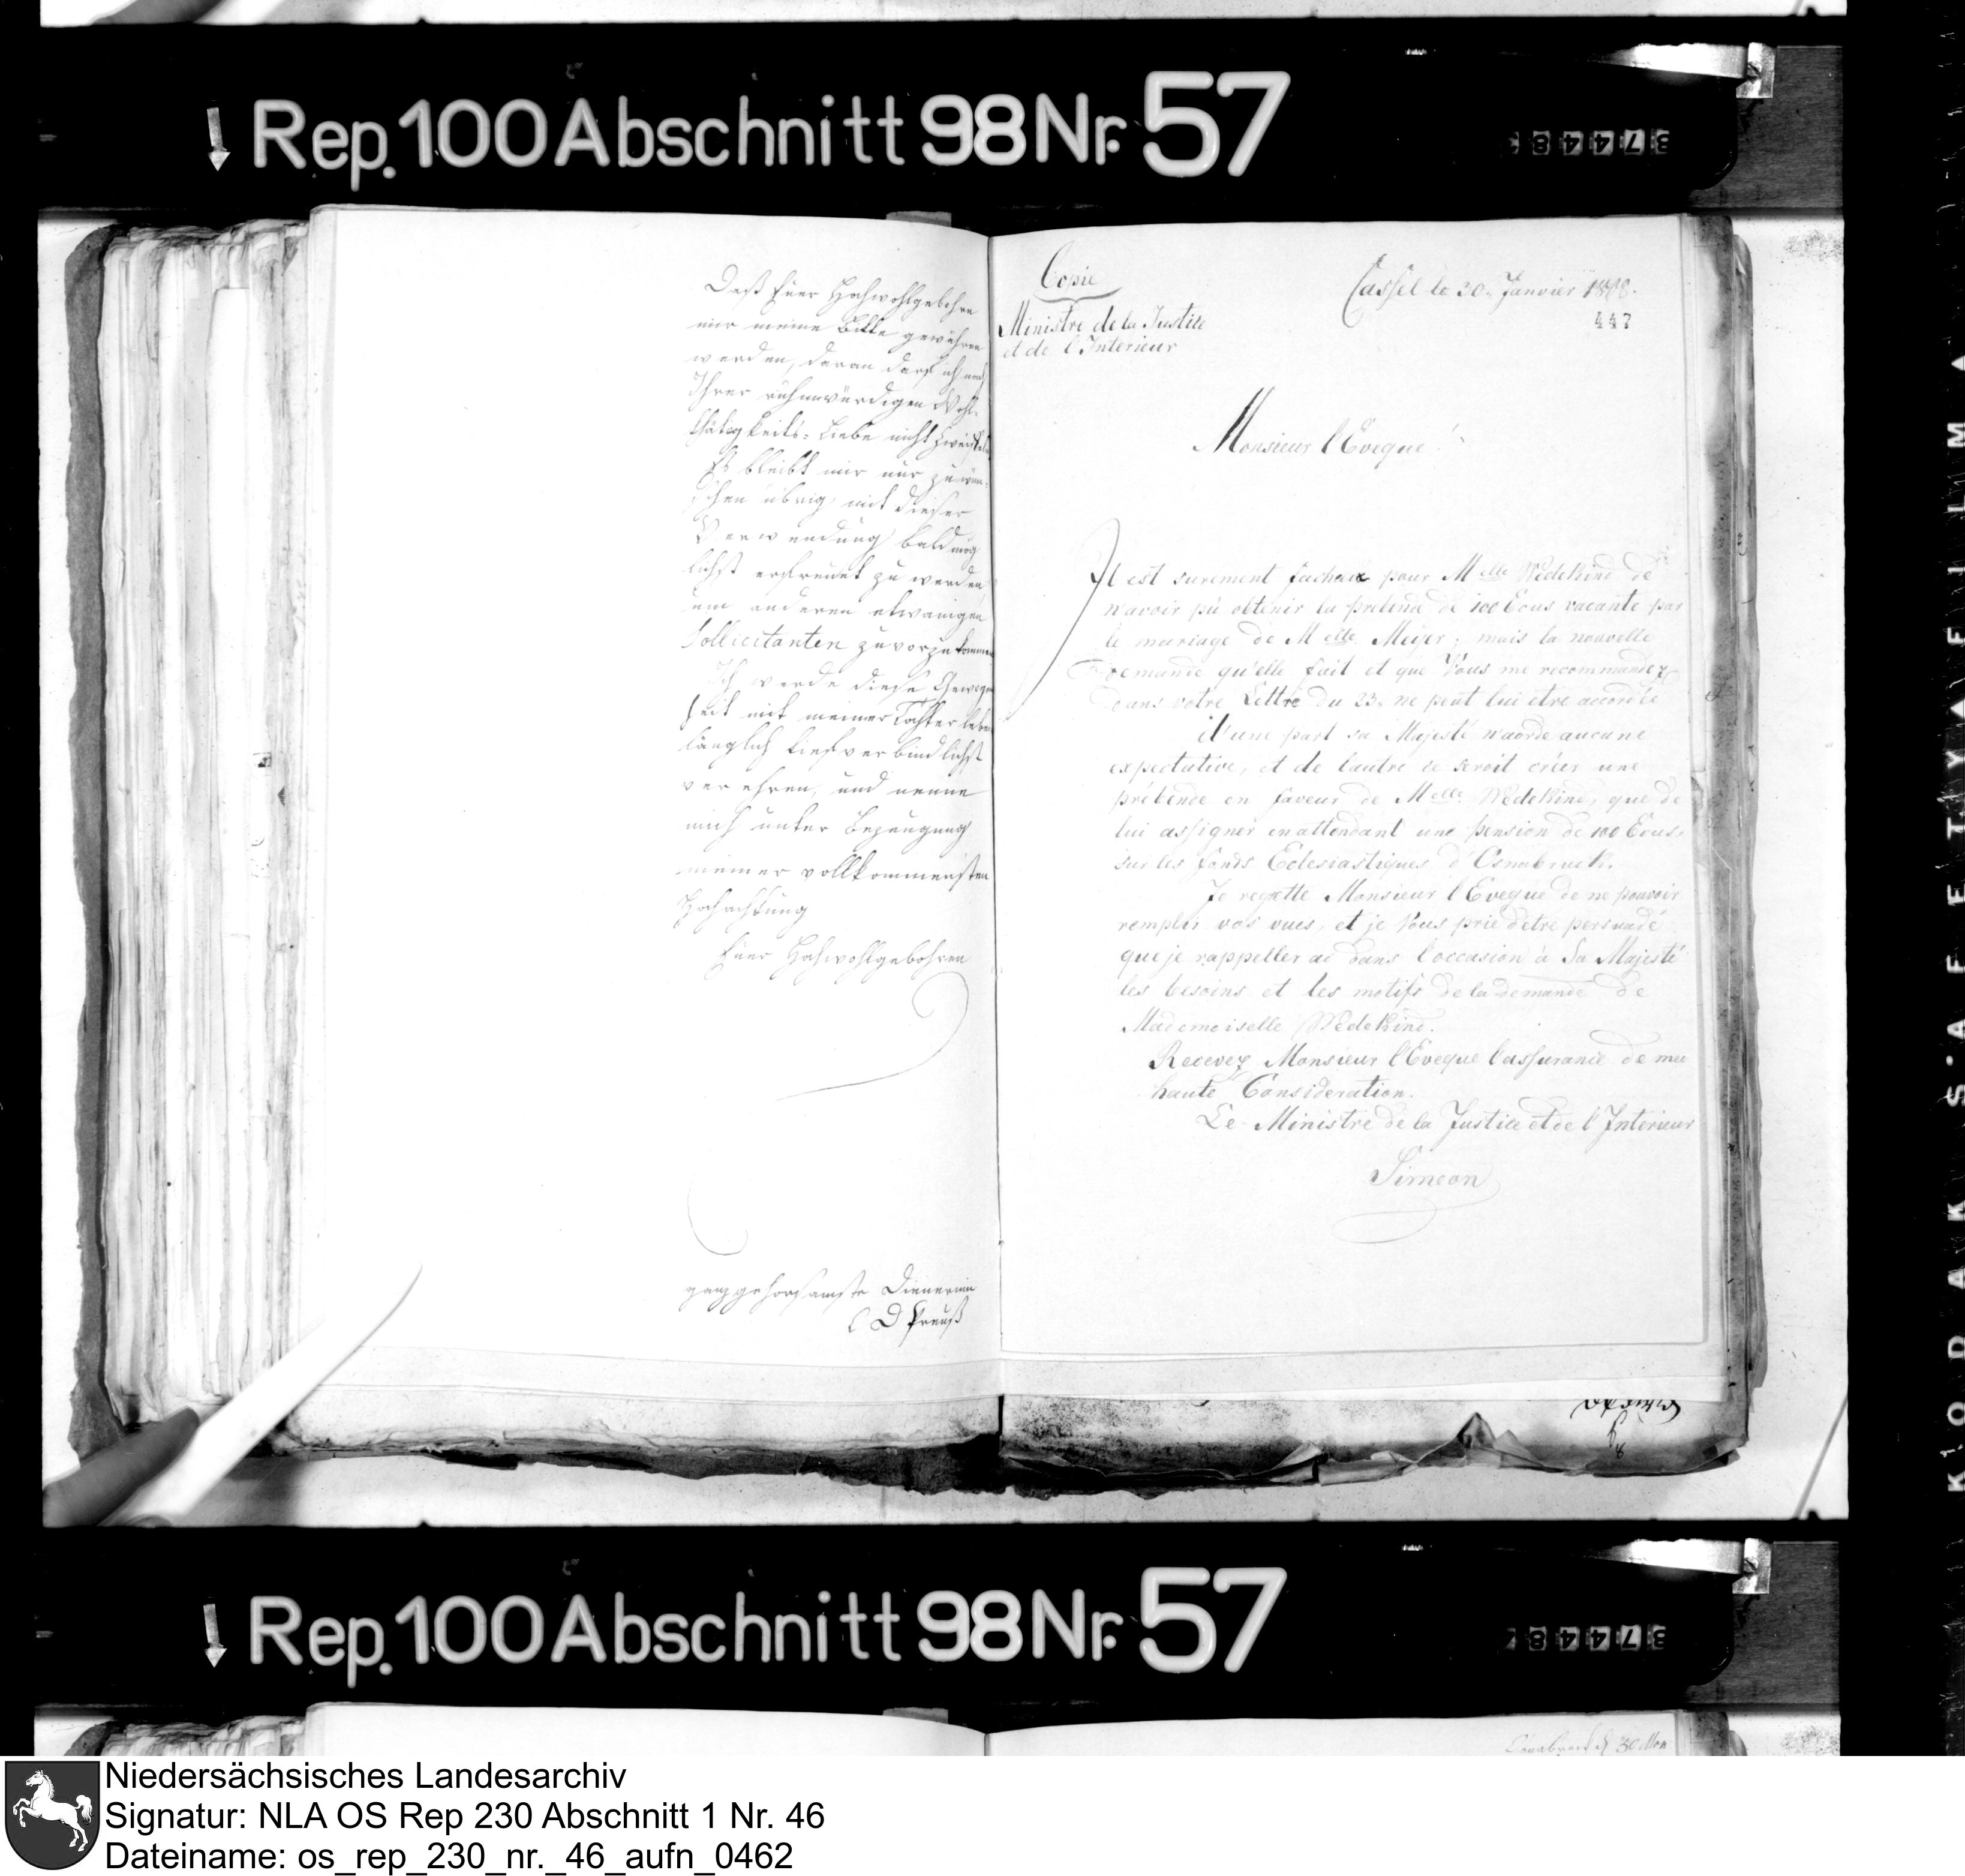 Rep. 100 Abschnitt 98 Nr. 57
Daß Euer Hochwohlgebohrn
mir meine Bitte gewähren
werden, daran darf ich nach
Ihrer ruhmwürdigen Wohl-
thätigkeits-Liebe nicht zweifeln
Es bleibt mir nur zu wün-
schen übrig mit dieser
Verwendung baldmög
lichst erfreuet zu werden
um anderen etwanigen
Sollicitanten zuvorzukommen
Ich werde diese
heit mit meiner Tochter leben
länglich tiefverbindlichst
verehren, und nenne
mich unter Bezeugung
meiner vollkommensten
Hochachtung
Euer Hochwohlgebohren
ganz gehorsamste Dienerin
C D Preuß
Copie
Cassel le 30. Janvier 1808.
447
Ministre de la Justice
et de l'Interieur
Monsieur l'Eveque!
Il est surement facheux pour Melle Wedekind de
n'avoir pû obtenir la prebende de 100 Ecus vacante par
le mariage de Melle Meijer; mais la nouvelle
demande qu'elle fait et que Vous me recommandez
dans votre Lettre du 23. ne peut lui etre accordée
D'une part sa Majesté aucune
expectative, et de l'autre ce seroit créer une
prébende en faveur de Melle Wedekind, que de
lui assigner en attendant une pension de 100 Ecus
sur les fonds Eclesiastiques d'Osnabruck.
Je regrette Monsieur l'Eveque de ne pouvoir
remplir vos vues, et je Vous prie d'etre persuadé
que je rappellerai dans l'occasion à Sa Majesté
les besoins et les motifs de la demande de
Mademoiselle Wedekind.
Recevez Monsieur l'Eveque l'assurance de ma
haute Consideration.
Le Ministre de la Justice et de l'Interieur
Simeon
Rep. 100 Abschnitt 98 Nr. 57
KODAK SAFETY FILM
Niedersächsisches Landesarchiv
Signatur: NLA OS Rep 230 Abschnitt 1 Nr. 46
Dateiname: os_rep_230_nr._46_aufn_0462